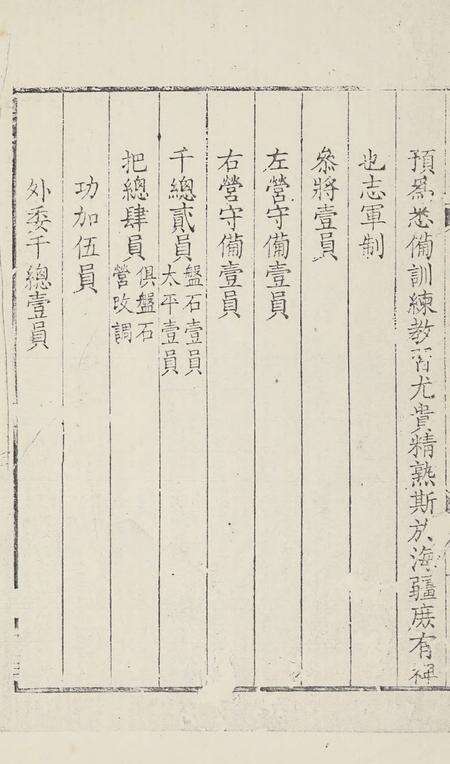 預爲悉備訓練教習尤貴精熟斯於海疆庶有裨
也志軍制
叅將壹員
左營守備壹員
右營守備壹員
千總貳員盤石壹員太平壹員
把總肆員俱盤石營改調
功加伍員
外委千總壹員